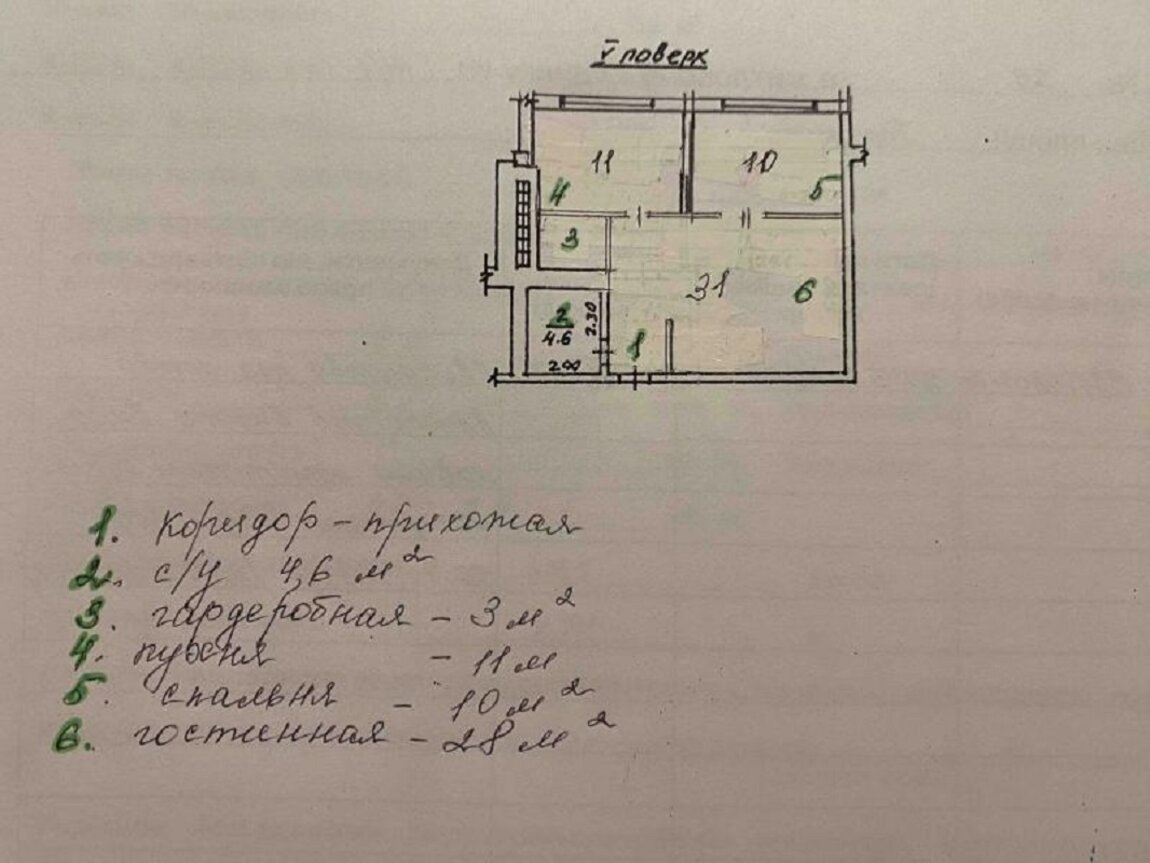 V поверх
11
10
4
5
3
31
6
2
4.6
2.30
1
2.00
1. коридор - прихожая
2. с/у 4,6 м²
3. гардеробная - 3 м²
4. кухня - 11 м
5. спальня - 10 м²
6. гостинная - 28 м²